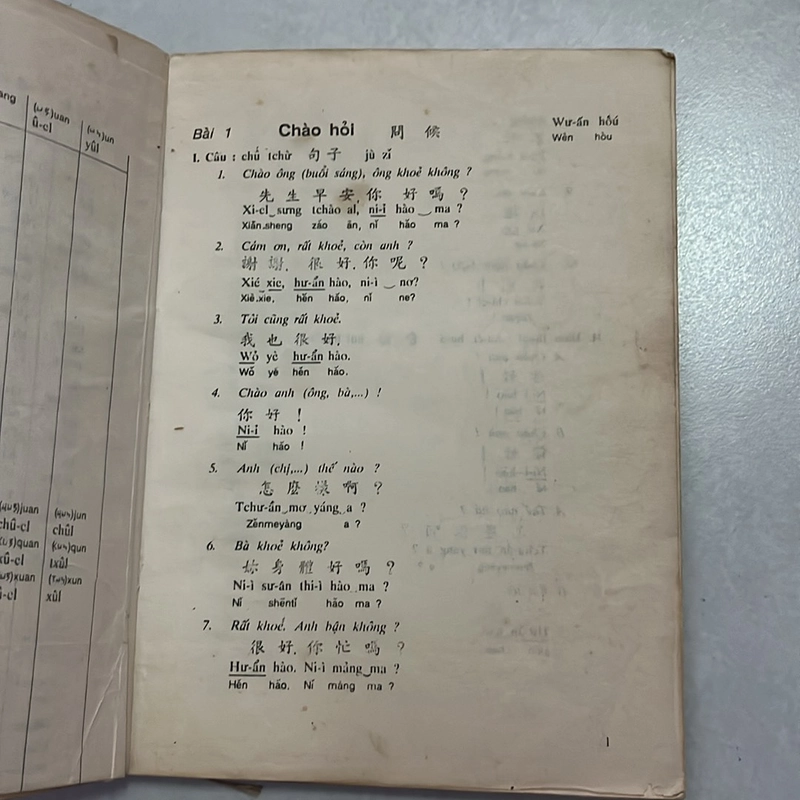 ang
(ㄩㄢ)uan
û-cl
(ㄩㄣ)un
yûl
(ㄐㄩㄢ)juan
chû-cl
(ㄐㄩㄣ)jun
chûl
quan
qun
txûl
xuan
xun
xûl
Bài 1 Chào hỏi 問 候 Wư-ấn hôú
Wèn hòu
I. Câu : chǘ tchừ 句 子 jù zǐ
1. Chào ông (buổi sáng), ông khoẻ không ?
先 生 早 安, 你 好 嗎 ?
Xi-cl_sưng tchào al, ni-ỉ hào _ ma ?
Xiānsheng záo ān, nǐ hǎo ma ?
2. Cám ơn, rất khoẻ, còn anh ?
謝 謝, 很 好, 你 呢 ?
Xié xie, hư-ẩn hào, ni-ì _ nơ?
Xiè.xie, hěn hǎo, nǐ ne?
3. Tôi cũng rất khoẻ.
我 也 很 好.
Wỏ yè hư-ẩn hào.
Wǒ yé hén hǎo.
4. Chào anh (ông, bà,...) !
你 好 !
Ni-ỉ hào !
Nǐ hǎo !
5. Anh (chị,...) thế nào ?
怎 麼 樣 啊 ?
Tchư-ẩn_mơ_yáng_a ?
Zěnmeyàng a ?
6. Bà khoẻ không?
妳 身 體 好 嗎 ?
Ni-ì sư-ân thi-ì hào_ma ?
Nǐ shēntǐ hǎo ma ?
7. Rất khoẻ. Anh bận không ?
很 好. 你 忙 嗎 ?
Hư-ẩn hào. Ni-ì mảng_ma ?
Hén hǎo. Nǐ máng ma ?
1